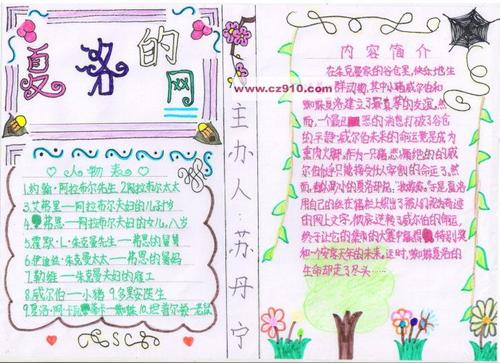 夏洛的网
人物表
1.约翰·阿拉布尔先生 2.阿拉布尔太太
3.艾弗里——阿拉布尔夫妇的儿子
4.弗恩——阿拉布尔夫妇的女儿,八岁
5.霍默·L·朱克曼先生——弗恩的舅舅
6.伊迪丝·朱克曼太太——弗恩的舅妈
7.勒维——朱克曼夫妇的雇工
8.威尔伯——小猪 9.多里安医生
9.夏洛·阿·卡 蒂卡——蜘蛛 10.坦普尔顿——老鼠
主办人:苏丹宁
www.cz910.com
内容简介
在朱克曼家的谷仓里,快乐地生
群动物,其中小猪威尔伯和
蜘蛛夏洛建立了最真挚的友谊,然
而,一个最 恶的消息打破了谷仓
的平静:威尔伯未来的命运竟是成为
熏肉火腿,作为一只
尔伯似乎只能接受任人宰割的命运了,然
而,看似渺小的夏洛却说:"我救你。"于是,夏洛
用自己的丝在猪栏上织出了被人们视为奇迹
的网上文字,彻底逆转了威尔伯的命运,
终于让它在集市的大赛中赢得 特别奖
和一个安享天年的未来。这时,蜘蛛夏洛的
生命却走了尽头……